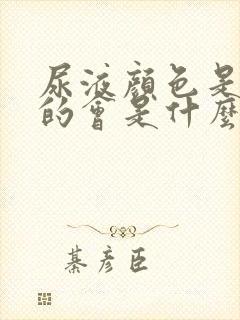 尿液顏色是
的會是什麼
綦彥臣